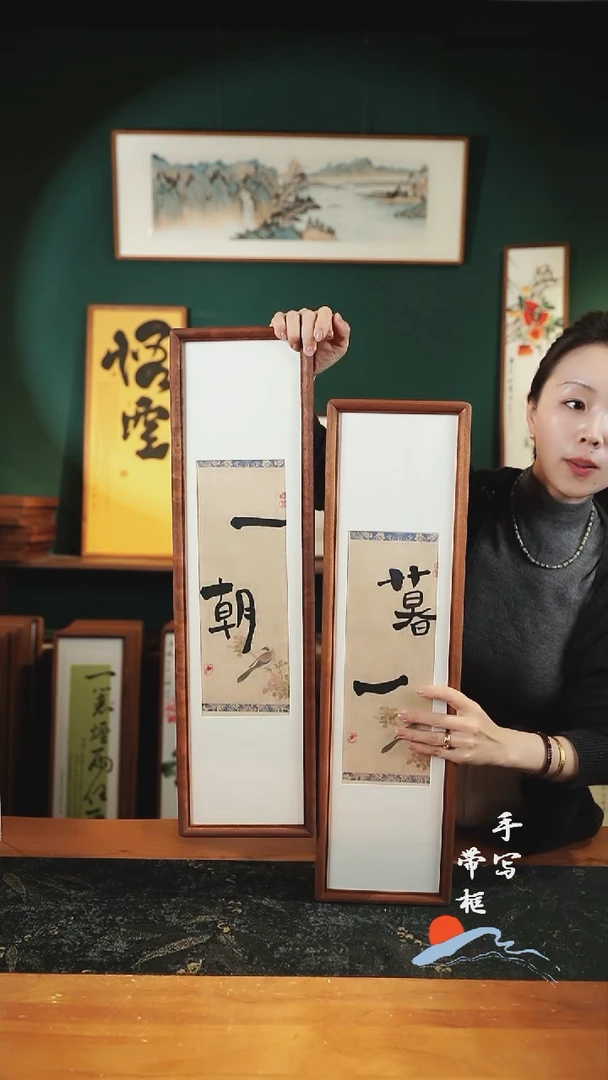 悟
一
朝
暮
一
一蓑煙雨任
手写
带框